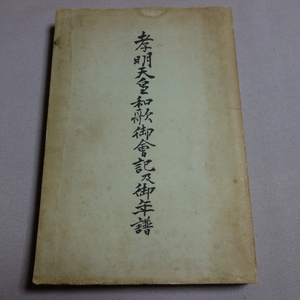 孝明天皇和歌御會記及御年譜